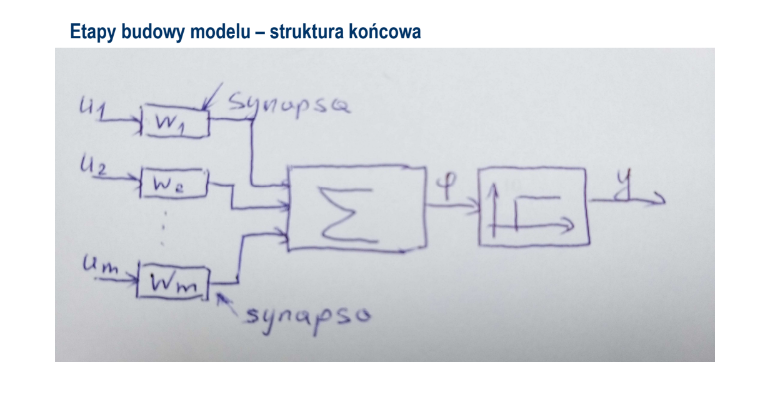 Etapy budowy modelu – struktura końcowa
synapsa
u1
w1
u2
w2
φ
y
Σ
um
wm
synapsa